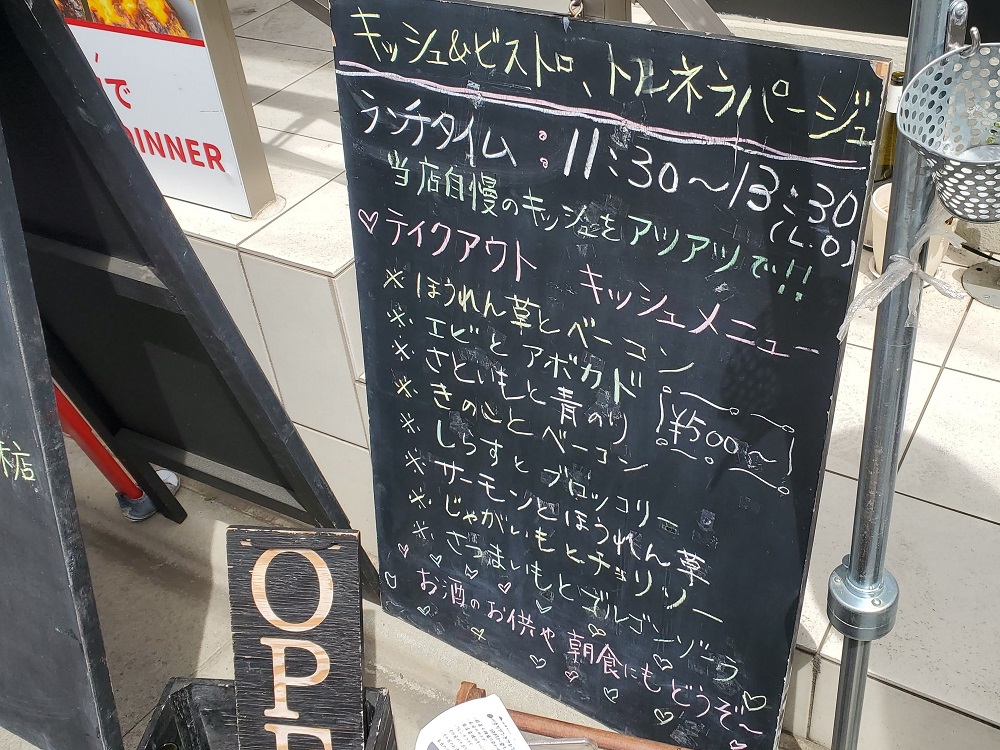 キッシュ&ビストロ、トルネラパージュ
ランチタイム：11:30～13:30
(L.O)
当店自慢のキッシュをアツアツで!!
♡テイクアウト キッシュメニュー
※ほうれん草とベーコン
※エビとアボカド
※さといもと青のり
※きのことベーコン
¥500～
※しらすとブロッコリー
※サーモンとほうれん草
※じゃがいもとチョリソー
※さつまいもとゴルゴンゾーラ
お酒のお供や朝食にもどうぞ～
で
DINNER
OPE